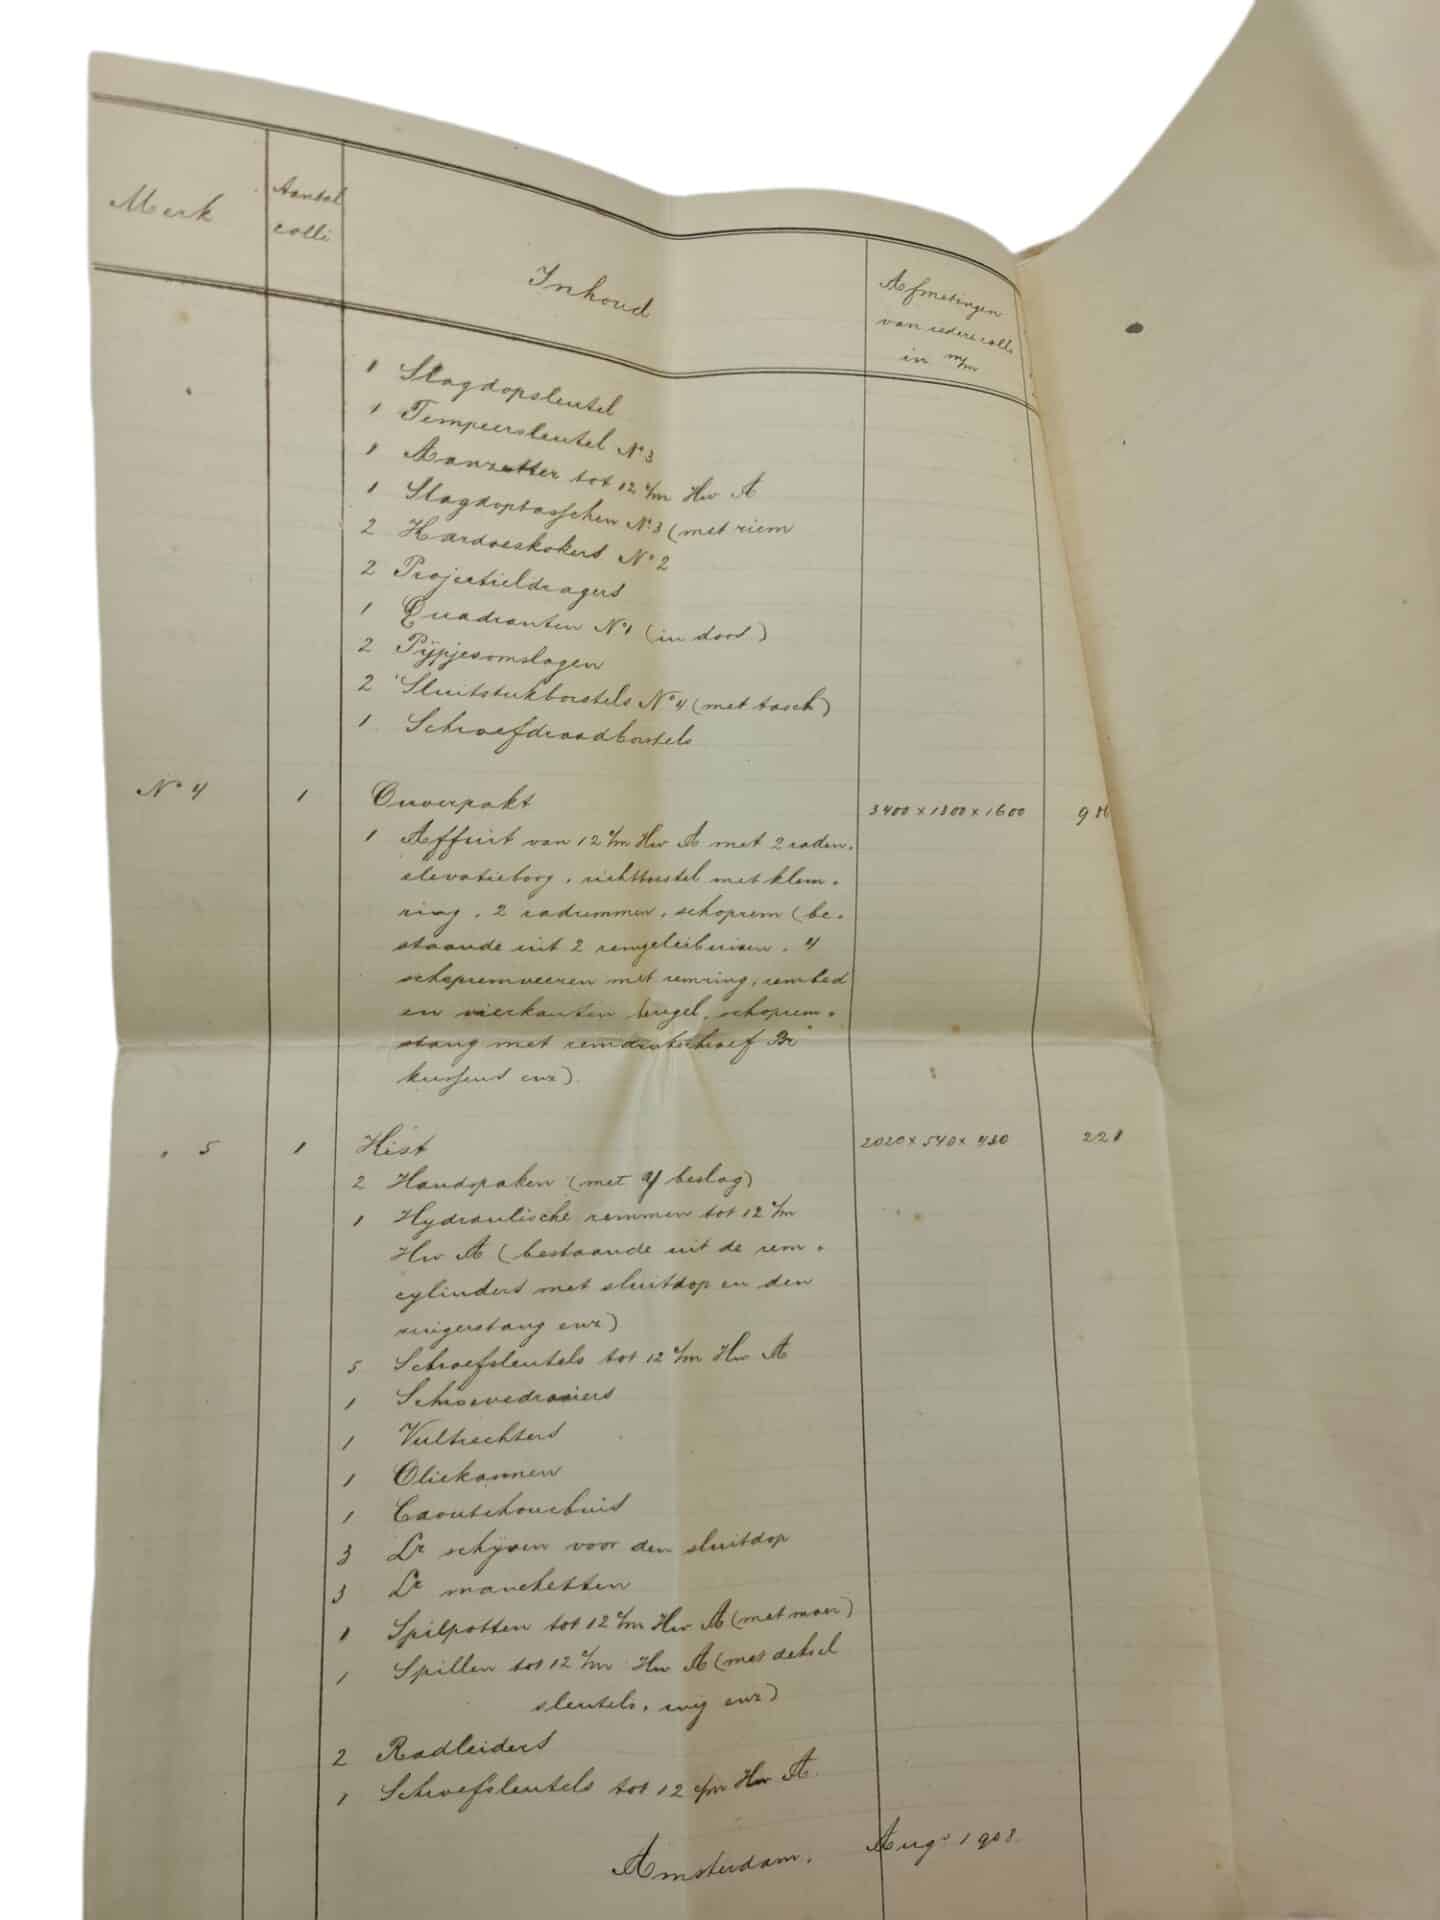 Merk
Aantal
colli
Inhoud
Afmetingen
van iedere colli
in m/m
1 Slagdopsleutel
1 Tempeersleutel No 3
1 Aanzetter tot 12 c/m Hw A
1 Slagdoptasschen No 3 (met riem
2 Kardoeskokers No 2
2 Projectieldragers
1 Quadranten No 1 (in doos)
2 Pijpjesomslagen
2 Sluitstukborstels No 4 (met tasch)
1 Schroefdraadborstels
No 4 1 Onverpakt 3400 x 1800 x 1600
1 Affuit van 12 c/m Hw A met 2 raden,
elevatieboog, richttoestel met klem-
ring, 2 radremmen, schoprem (be-
staande uit 2 remgeleibuizen, 4
schopremveeren met remring, rembed
en vierkanten beugel, schoprem-
stang met remdrukschroef Br
kussens enz).
" 5 1 Kist 2020 x 540 x 430 221
2 Handspaken (met beslag)
1 Hydraulische remmen tot 12 c/m
Hw A (bestaande uit de rem-
cylinders met sluitdop en den
zuigerstang enz)
5 Schroefsleutels tot 12 c/m Hw A
1 Schroevedraaiers
1 Vultrechters
1 Oliekannen
1 Caoutchoucbuis
3 Lr schijven voor den sluitdop
3 Lr manchetten
1 Spilpotten tot 12 c/m Hw A (met moer)
1 Spillen tot 12 c/m Hw A (met deksel
sleutels, wig enz)
2 Radleiders
1 Schroefsleutels tot 12 c/m Hw A.
Amsterdam, Augs 1908